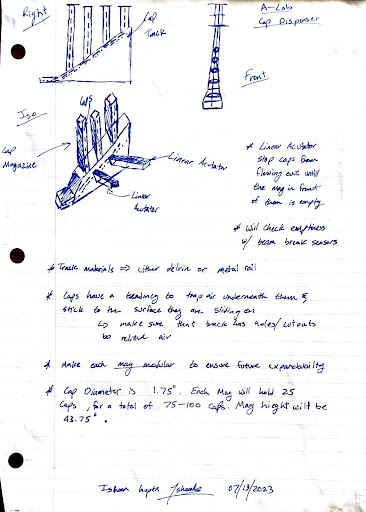 Right
Cap
Track
A-Lab
Cap Dispenser
Front
Iso
Caps
Cap
Magazine
Linear Acutator
Linear
Acutator
* Linear Acutator
stop caps from
flowing out until
the mag in front
of them is empty
* Will check emptiness
w/ beam break sensors
* Track materials => either delrin or metal rail
* Caps have a tendency to trap air underneath them &
stick to the surface they are sliding on
↳ make sure that track has holes/cutouts
to relieve air
* Make each mag modular to ensure future expandability
* Cap Diameter is 1.75". Each Mag will hold 25
caps, for a total of 75-100 caps. Mag hieght will be
43.75".
Ishaan Gupta 07/13/2023